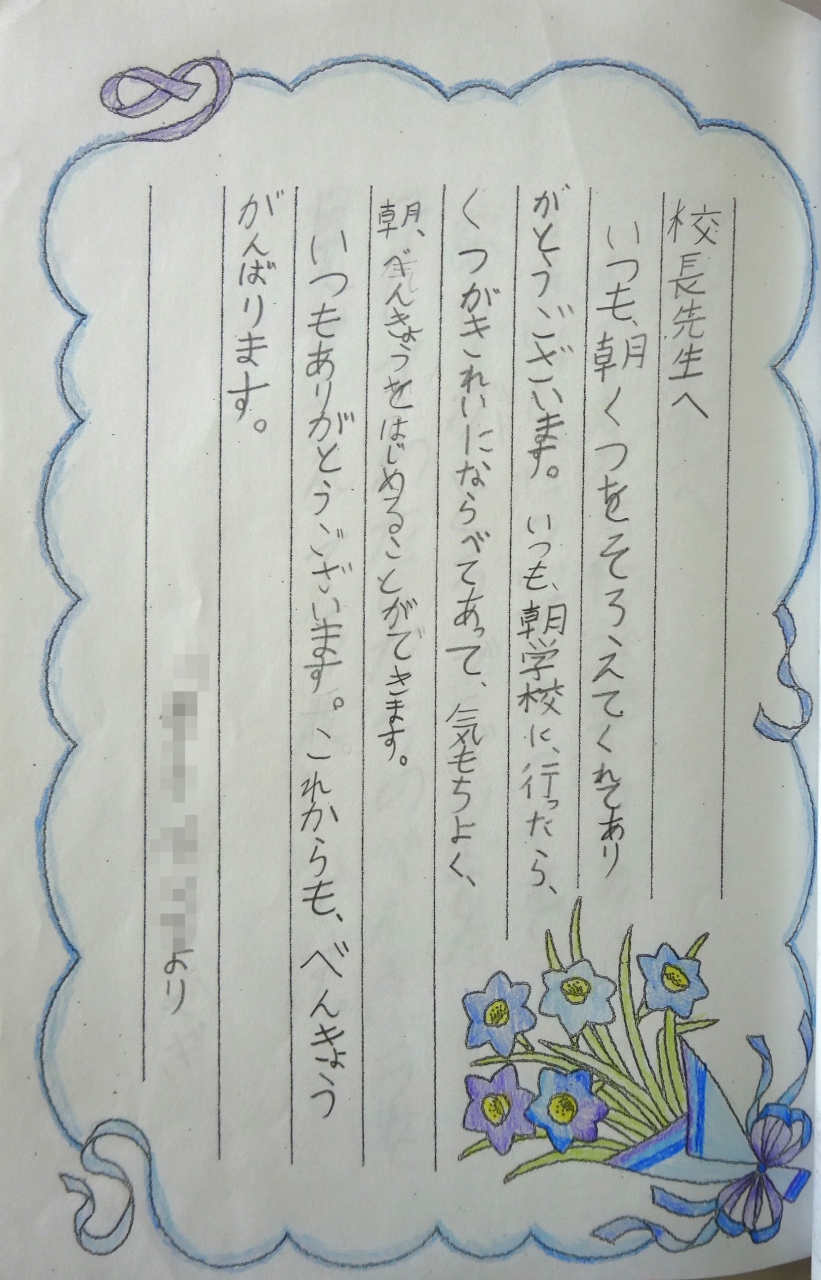 校長先生へ
いつも、朝くつをそろえてくれてあり
がとうございます。いつも、朝学校に、行ったら、
くつがきれいにならべてあって、気もちよく、
朝、べんきょうをはじめることができます。
いつもありがとうございます。これからも、べんきょう
がんばります。
より